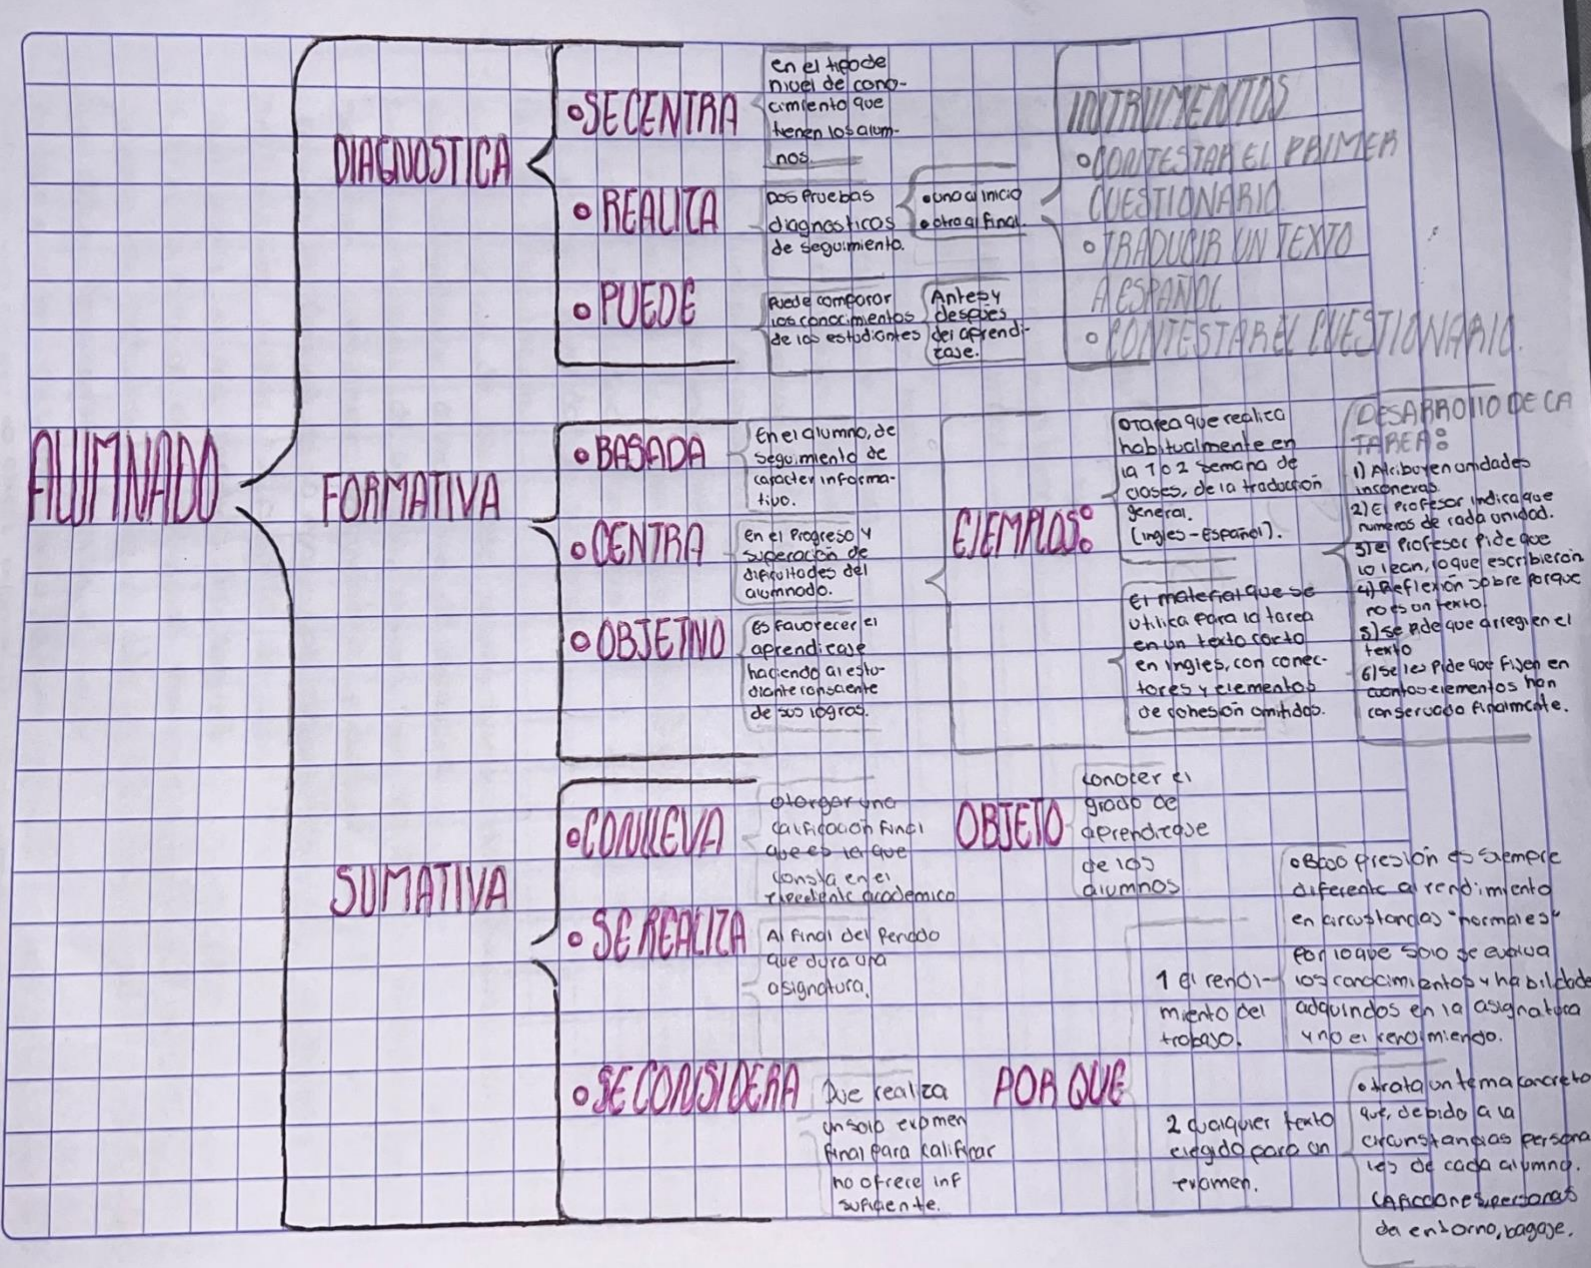 ALUMNADO
DIAGNOSTICA
•SE CENTRA
en el tipo de
nivel de cono-
cimiento que
tienen los alum-
nos.
• REALIZA
Dos Pruebas
diagnosticos
de seguimiento.
•uno al inicio
•otro al final.
INSTRUMENTOS
•CONTESTAR EL PRIMER
CUESTIONARIO.
• TRADUCIR UN TEXTO
A ESPAÑOL
• CONTESTAR EL CUESTIONARIO.
• PUEDE
Puede comparar
los conocimientos
de los estudiantes
Antes y
después
del aprendi-
zaje.
FORMATIVA
• BASADA
En el alumno, de
seguimiento de
caracter informa-
tivo.
• CENTRA
en el Progreso y
superación de
dificultades del
alumnado.
• OBJETIVO
es favorecer el
aprendizaje
haciendo al estu-
diante consciente
de sus logros.
EJEMPLOS:
o tarea que realiza
habitualmente en
la 1 o 2 semana de
clases, de la traducción
general.
(ingles-Español).
El material que se
utiliza para la tarea
en un texto corto
en ingles, con conec-
tores y elementos
de cohesión omitidos.
DESARROLLO DE LA
TAREA:
1) Atribuyen unidades
2) El Profesor indica que
numeros de cada unidad.
3) el Profesor Pide que
lo lean, lo que escribieron
4) Reflexión sobre Porque
no es un texto
5) se pide que arreglen el
texto
6) se les Pide que fijen en
cuantos elementos han
conservado finalmente.
SUMATIVA
•CONLLEVA
otorgar una
calificación final
que es
consta en el
expediente academico
OBJETO
conocer el
grado de
aprendizaje
de los
alumnos
• SE REALIZA
Al final del Periodo
que dura una
asignatura.
• SE CONSIDERA
Que realiza
un solo examen
final para calificar
no ofrece inf
suficiente.
POR QUE
1 el rendi-
miento del
trabajo.
•Bajo presión es siempre
diferente al rendimiento
en circustancias "normales"
Por lo que solo se evalua
los conocimientos y habilidade
adquiridos en la asignatura
y no el rendimiendo.
2 cualquier texto
elegido para un
examen.
•trata un tema concreto
que, debido a la
circunstancias persona
les de cada alumno.
(Aficciones, personas
da entorno, bagaje.